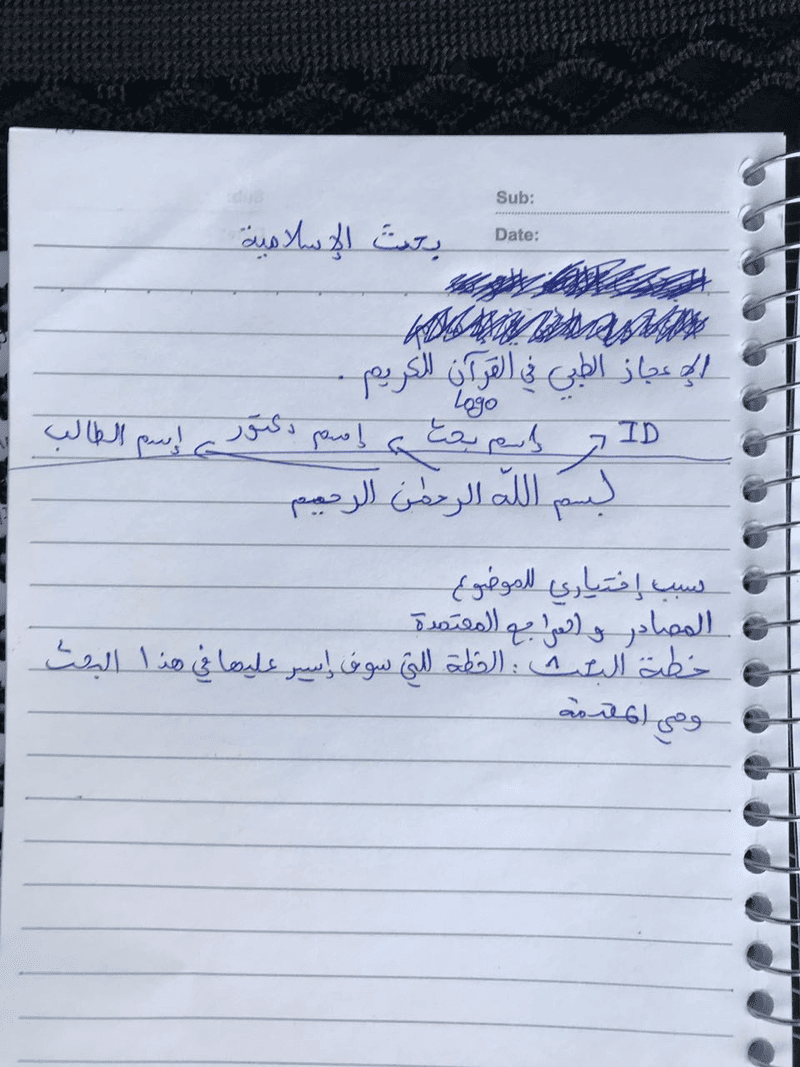 Sub:
Date:
بحث الإسلامية
الإعجاز الطبي في القرآن الكريم .
Logo
ID إسم بحث إسم دكتور إسم الطالب
بسم الله الرحمٰن الرحيم
سبب إختياري للموضوع
المصادر والمراجع المعتمدة
خطة البحث : الخطة التي سوف إسير عليها في هذا البحث
وهي المقدمة